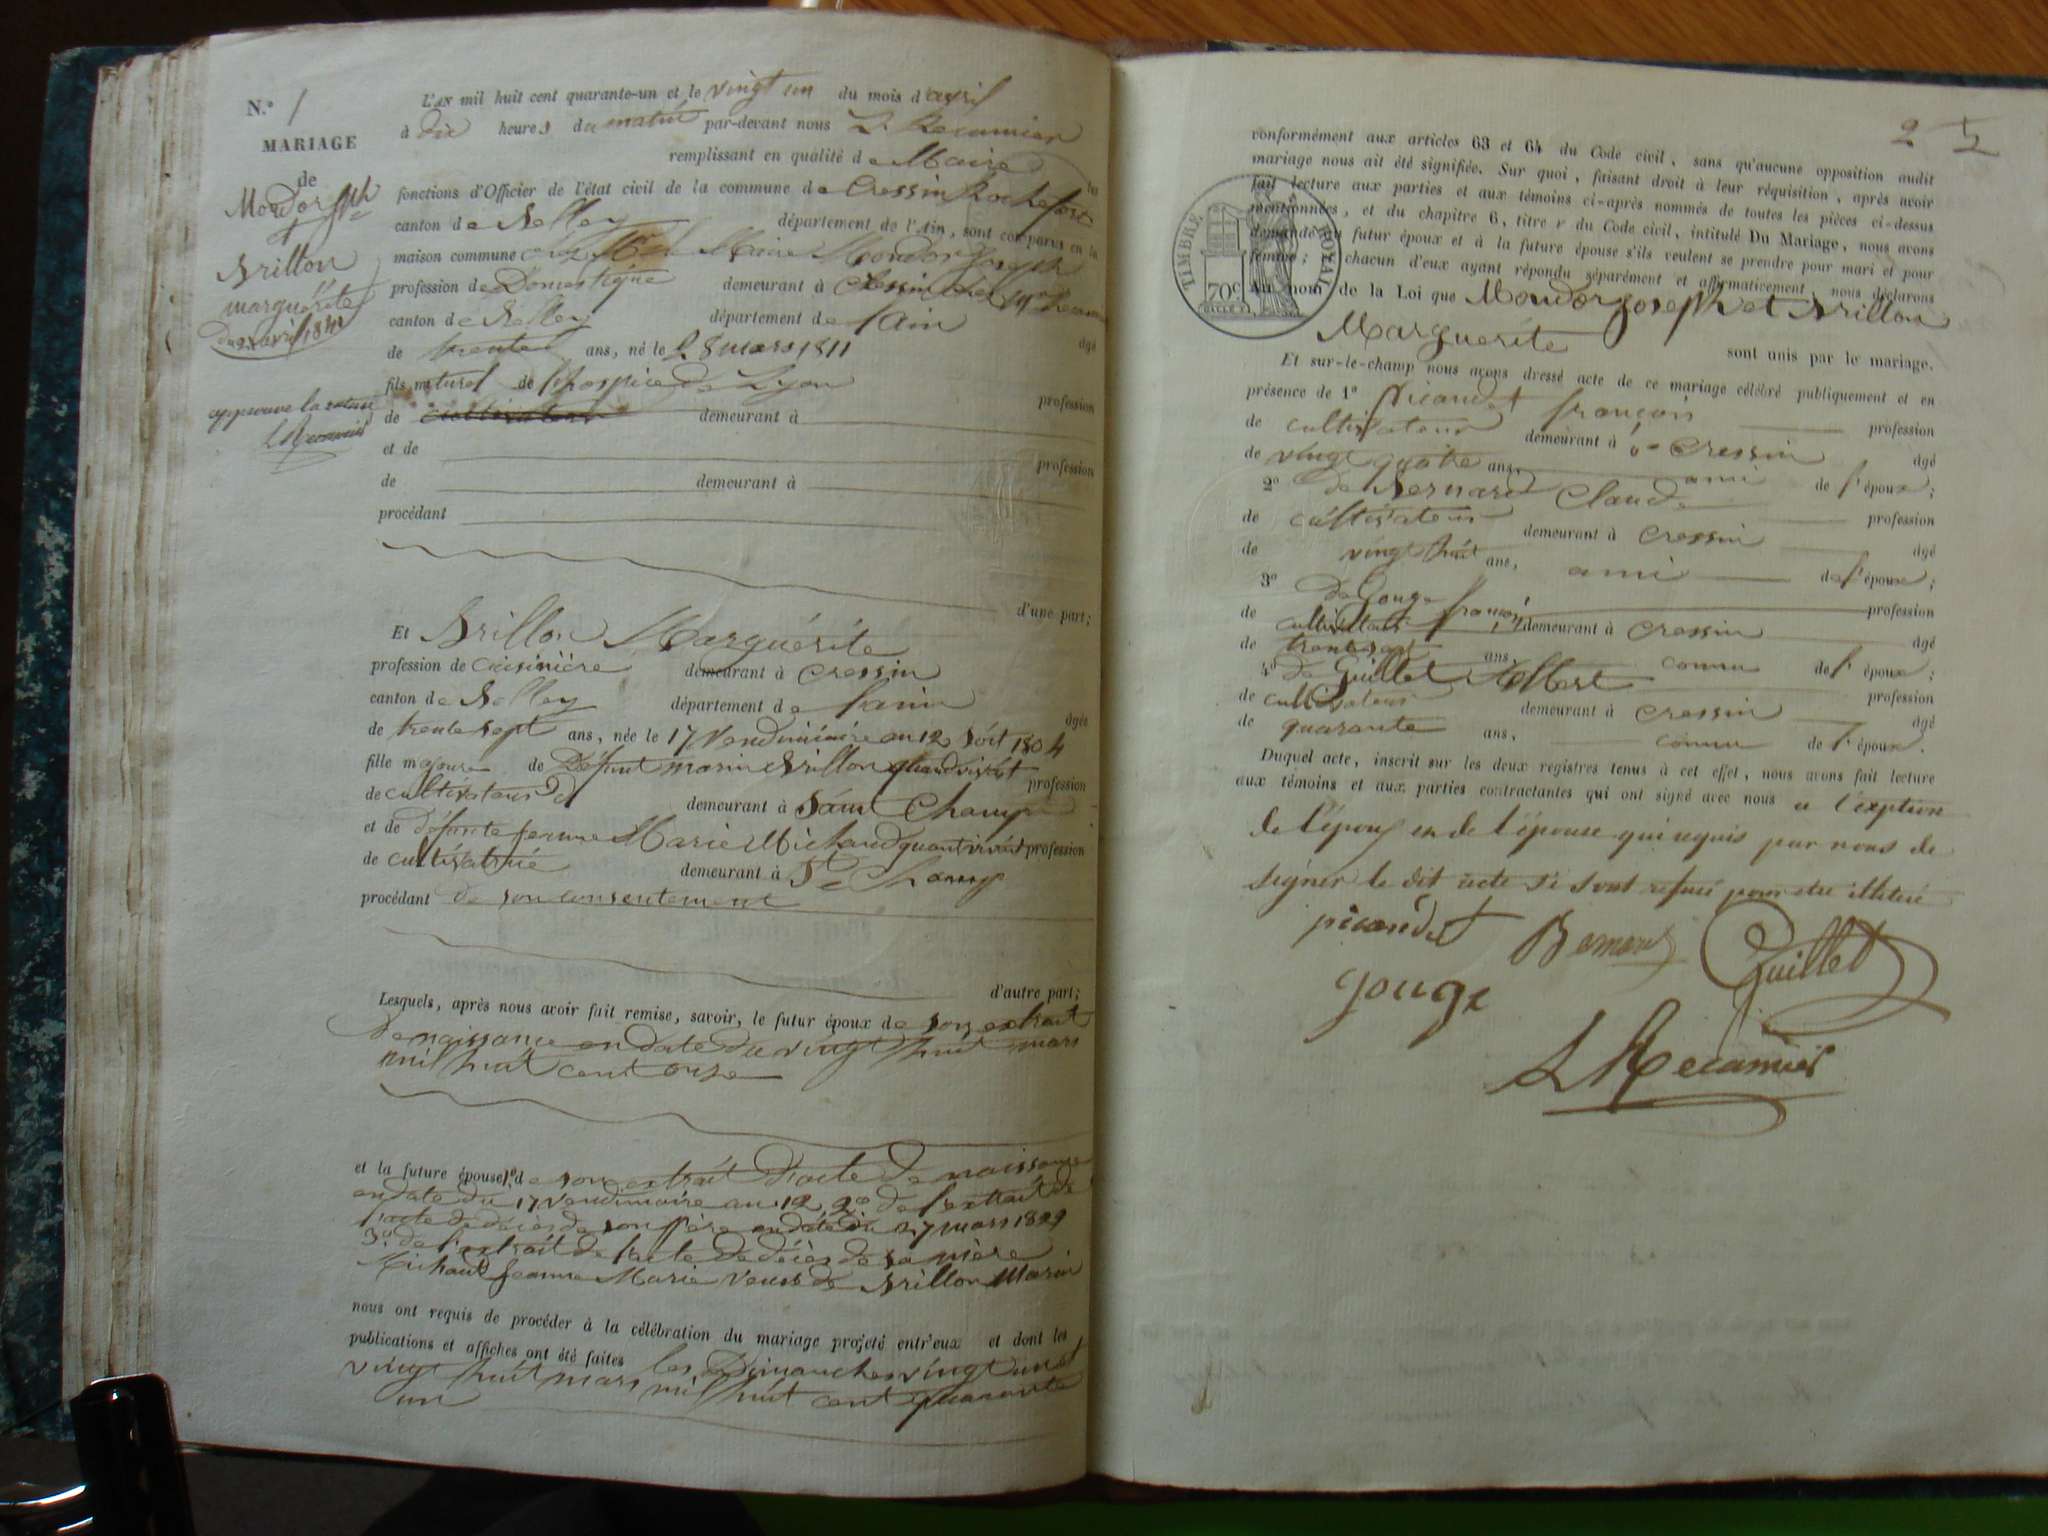 N.º 1
MARIAGE
de
Mondor Jph
et
Brillon
marguérite
du 21 avril 1841
approuve la rature
L Recamier
L'an mil huit cent quarante-un et le vingt un du mois d'avril
à dix heures du matin par-devant nous L. Recamier
remplissant en qualité de Maire les
fonctions d'Officier de l'état civil de la commune de Cressin Rochefort
canton de Belley département de l'Ain, sont comparus en la
maison commune Maire Mondor Joseph
profession de Domestique demeurant à Cressin chez Mr Recamier
canton de Belley département de l'ain âgé
de trente ans, né le 28 mars 1811
fils naturel de l'hospice de Lyon profession
de cultivateur demeurant à
et de profession
de demeurant à
procédant
d'une part;
Et Brillon Marguérite
profession de Cuisinière demeurant à Cressin
canton de Belley département de l'ain âgée
de trente sept ans, née le 17 Vendimiaire an 12 soit 1804
fille majeure de Défunt marin Brillon quand vivait profession
de cultivateur demeurant à Saint Champ
et de défunte femme Marie Michaud quant vivait profession
de cultivatrice demeurant à St Champ
procédant de son consentement
d'autre part;
Lesquels, après nous avoir fait remise, savoir, le futur époux de son extrait
De naissance en date du vingt huit mars
mil huit cent onze
et la future épouse 1º de son extrait D'acte De naissance
en date du 17 Vendimiaire an 12 2º de l'extrait de
l'acte de décès de son père en date du 27 mars 1829
3º de l'extrait de l'acte de décès de sa mère
Michaud Jeanne Marie Veuve de Brillon Marin
nous ont requis de procéder à la célébration du mariage projeté entr'eux et dont les
publications et affiches ont été faites les Dimanches vingt un et
vingt huit mars mil huit cent quarante
un
2
conformément aux articles 63 et 64 du Code civil, sans qu'aucune opposition audit
mariage nous ait été signifiée. Sur quoi, faisant droit à leur réquisition, après avoir
fait lecture aux parties et aux témoins ci-après nommés de toutes les pièces ci-dessus
mentionnées, et du chapitre 6, titre V du Code civil, intitulé Du Mariage, nous avons
demandé au futur époux et à la future épouse s'ils veulent se prendre pour mari et pour
femme; chacun d'eux ayant répondu séparément et affirmativement, nous déclarons
TIMBRE ROYAL
70c
Au nom de la Loi que Mondor Joseph et Brillon
Marguérite sont unis par le mariage.
Et sur-le-champ nous avons dressé acte de ce mariage célébré publiquement et en
présence de 1º Picandet françois profession
de cultivateur demeurant à Cressin âgé
de vingt quatre ans, ami de l'époux;
2º de Bernard Claude profession
de cultivateur demeurant à Cressin âgé
de vingt huit ans, ami de l'époux;
3º de Gouge françois profession
de cultivateur demeurant à Cressin âgé
de trente sept ans, connu de l'époux;
4º de Guillet Albert profession
de cultivateur demeurant à Cressin âgé
de quarante ans, connu de l'époux.
Duquel acte, inscrit sur les deux registres tenus à cet effet, nous avons fait lecture
aux témoins et aux parties contractantes qui ont signé avec nous a l'exption
de l'époux et de l'épouse qui requis par nous de
signer le dit acte s'i sont refusé pour être illitéré
picandet Bernard Guillet
gouge
L Recamier